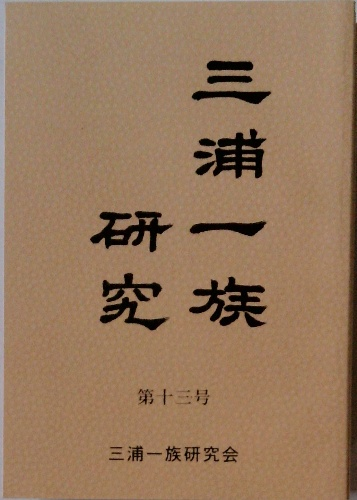 三浦一族
研究
第十三号
三浦一族研究会